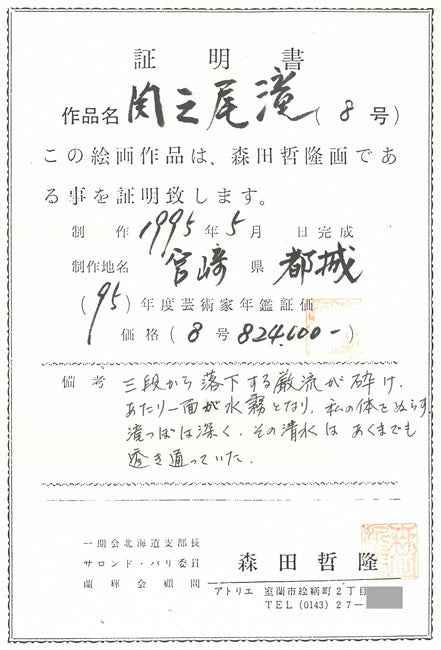 証明書
作品名 関之尾滝 (8号)
この絵画作品は、森田哲隆画であ
る事を証明致します。
制作 1995年5月 日完成
制作地名 宮崎県都城
(95)年度芸術家年鑑証価
価格(8号 824,600-)
備考 三段から落下する厳流が砕け、
あたり一面が水霧となり、私の体をぬらす
滝つぼは深く、その清水はあくまでも
透き通っていた。
一期会北海道支部長
サロンド・パリ委員
蘭暉会顧問
森田哲隆
アトリエ 室蘭市絵鞆町2丁目
TEL (0143) 27-